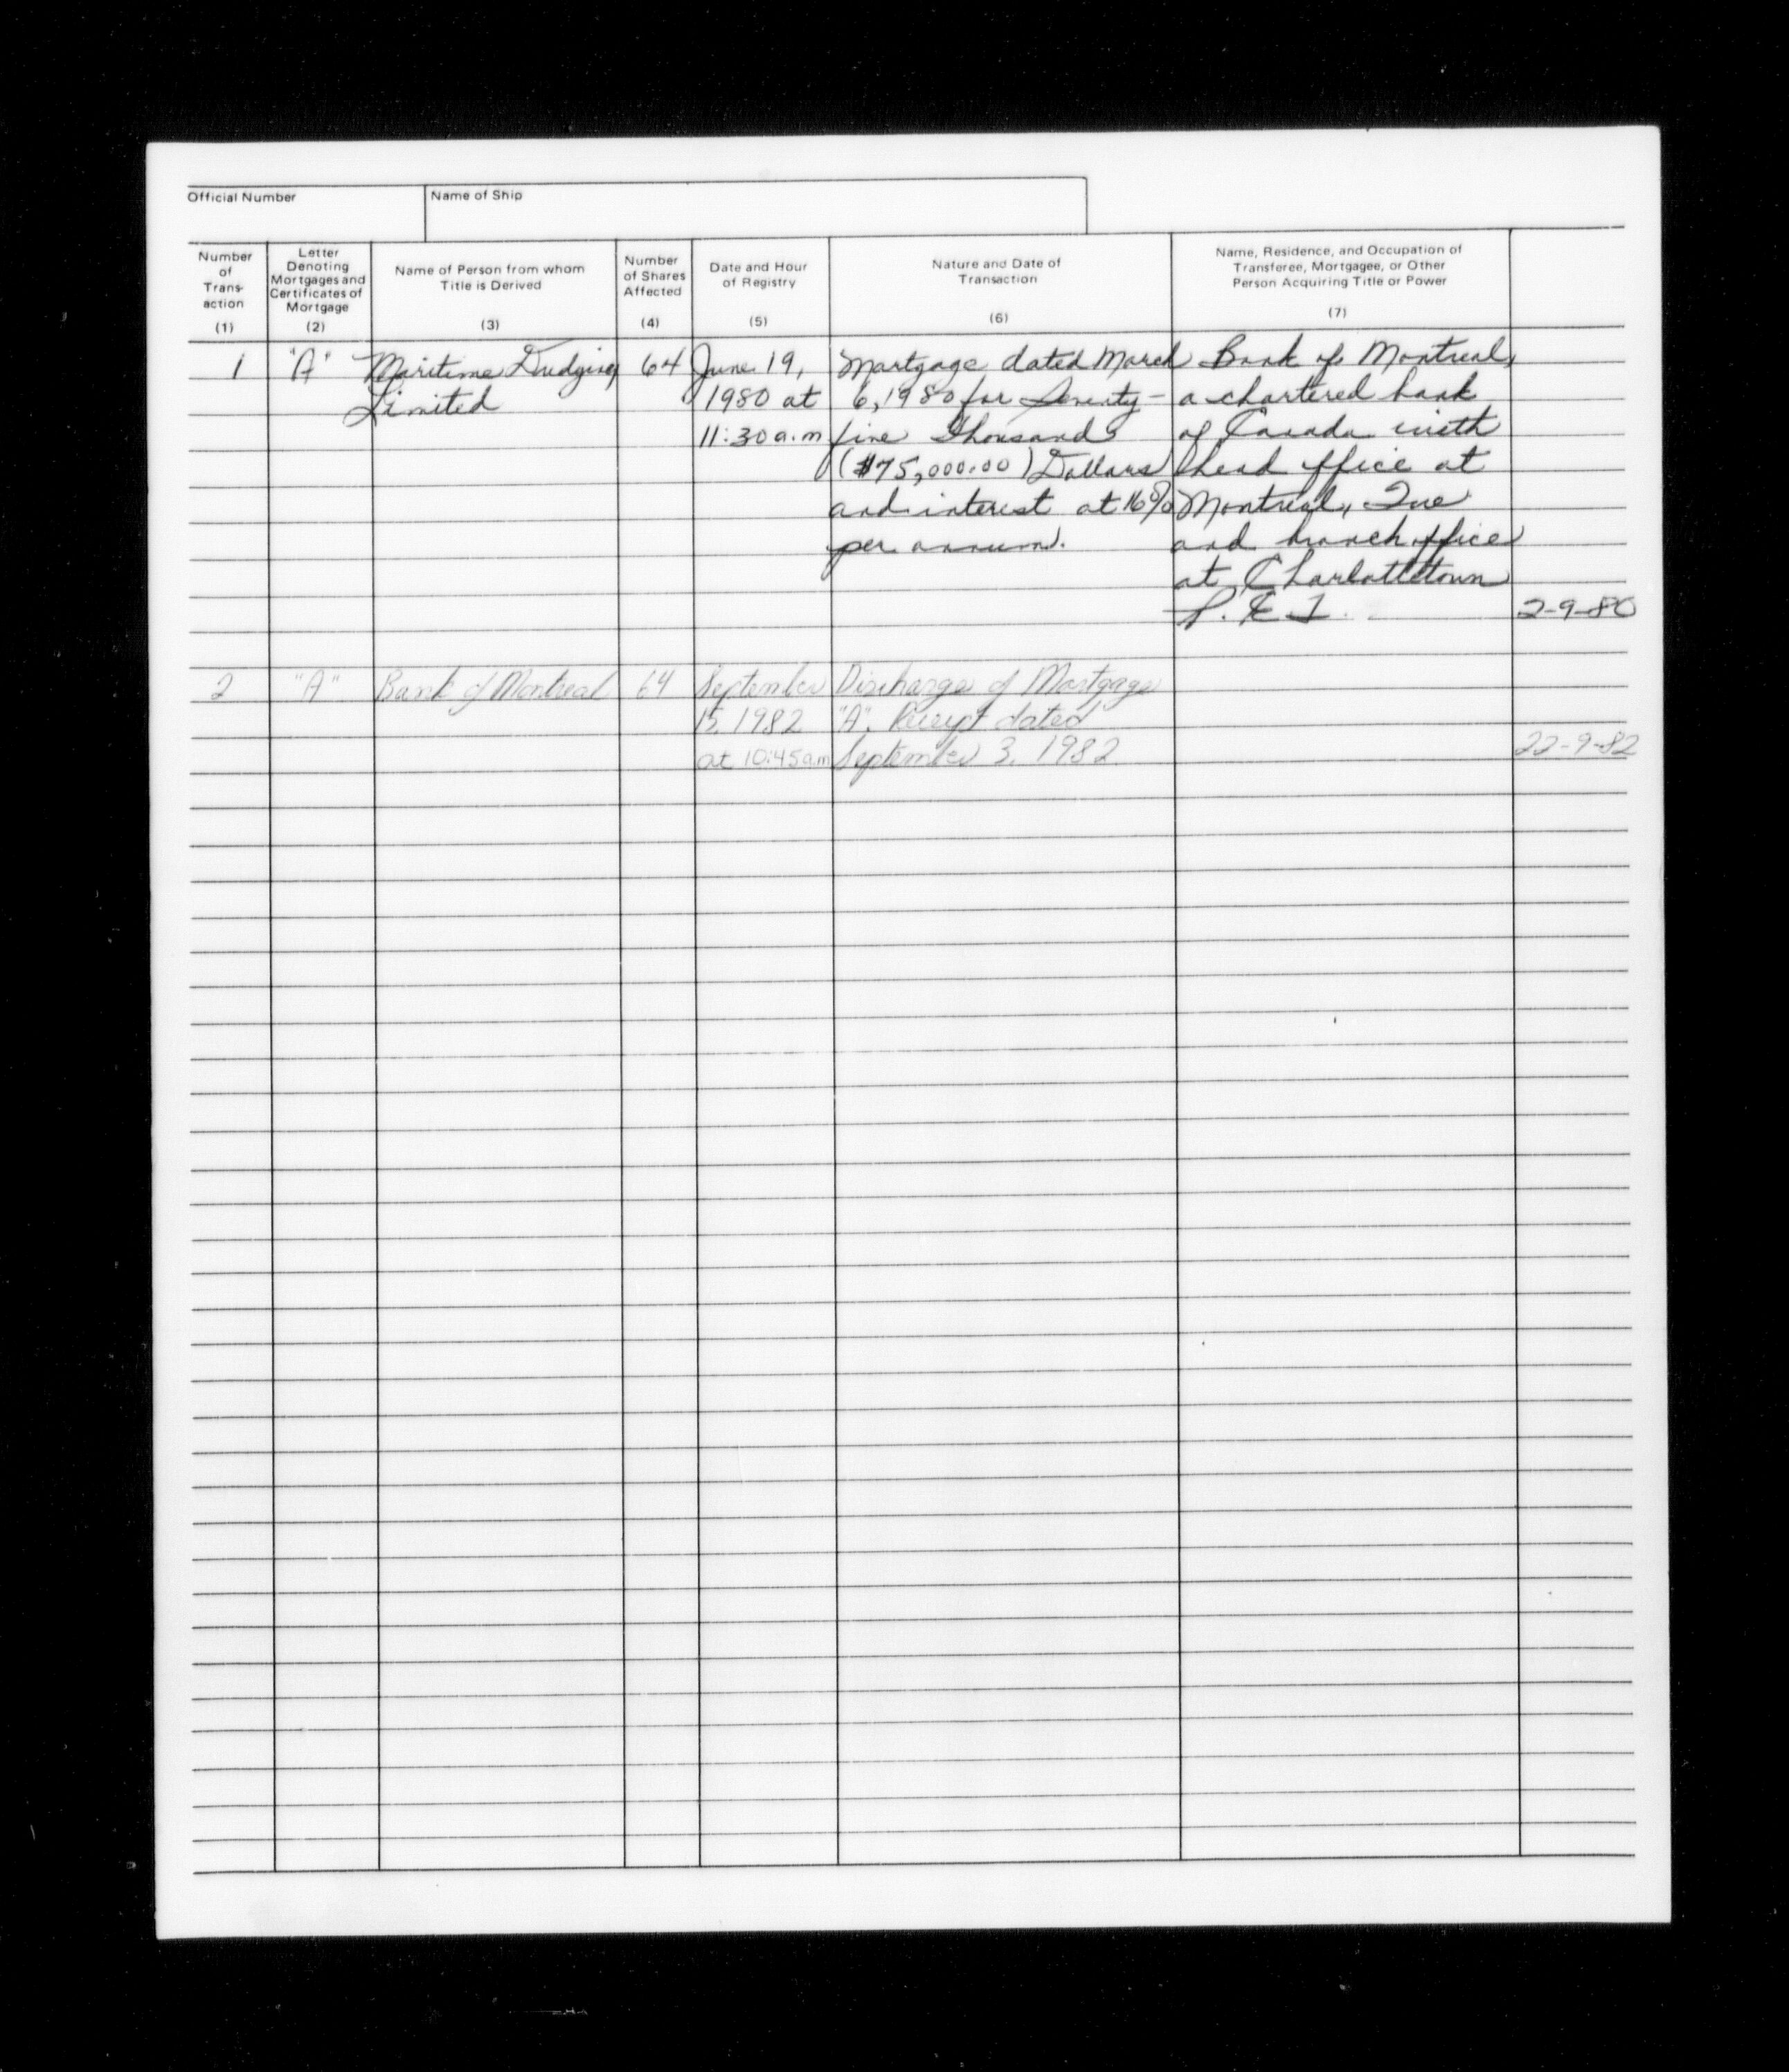 Official Number
Name of Ship
Number of Trans- action (1)
Letter Denoting Mortgages and Certificates of Mortgage (2)
Name of Person from whom Title is Derived (3)
Number of Shares Affected (4)
Date and Hour of Registry (5)
Nature and Date of Transaction (6)
Name, Residence, and Occupation of Transferee, Mortgagee, or Other Person Acquiring Title or Power (7)
1 "A" Maritime Dredging 64 June 19, Mortgage dated March Bank of Montreal,
Limited 1980 at 6, 1980 for Seventy- a chartered bank
11:30 a.m five Thousand of Canada with
($75,000.00) Dollars head office at
and interest at 16% Montreal, Que
per annum. and branch office
at Charlottetown
P.E.I. 2-9-80
2 "A" Bank of Montreal 64 September Discharge of Mortgage
15, 1982 "A". Receipt dated
at 10:45am September 3, 1982 22-9-82